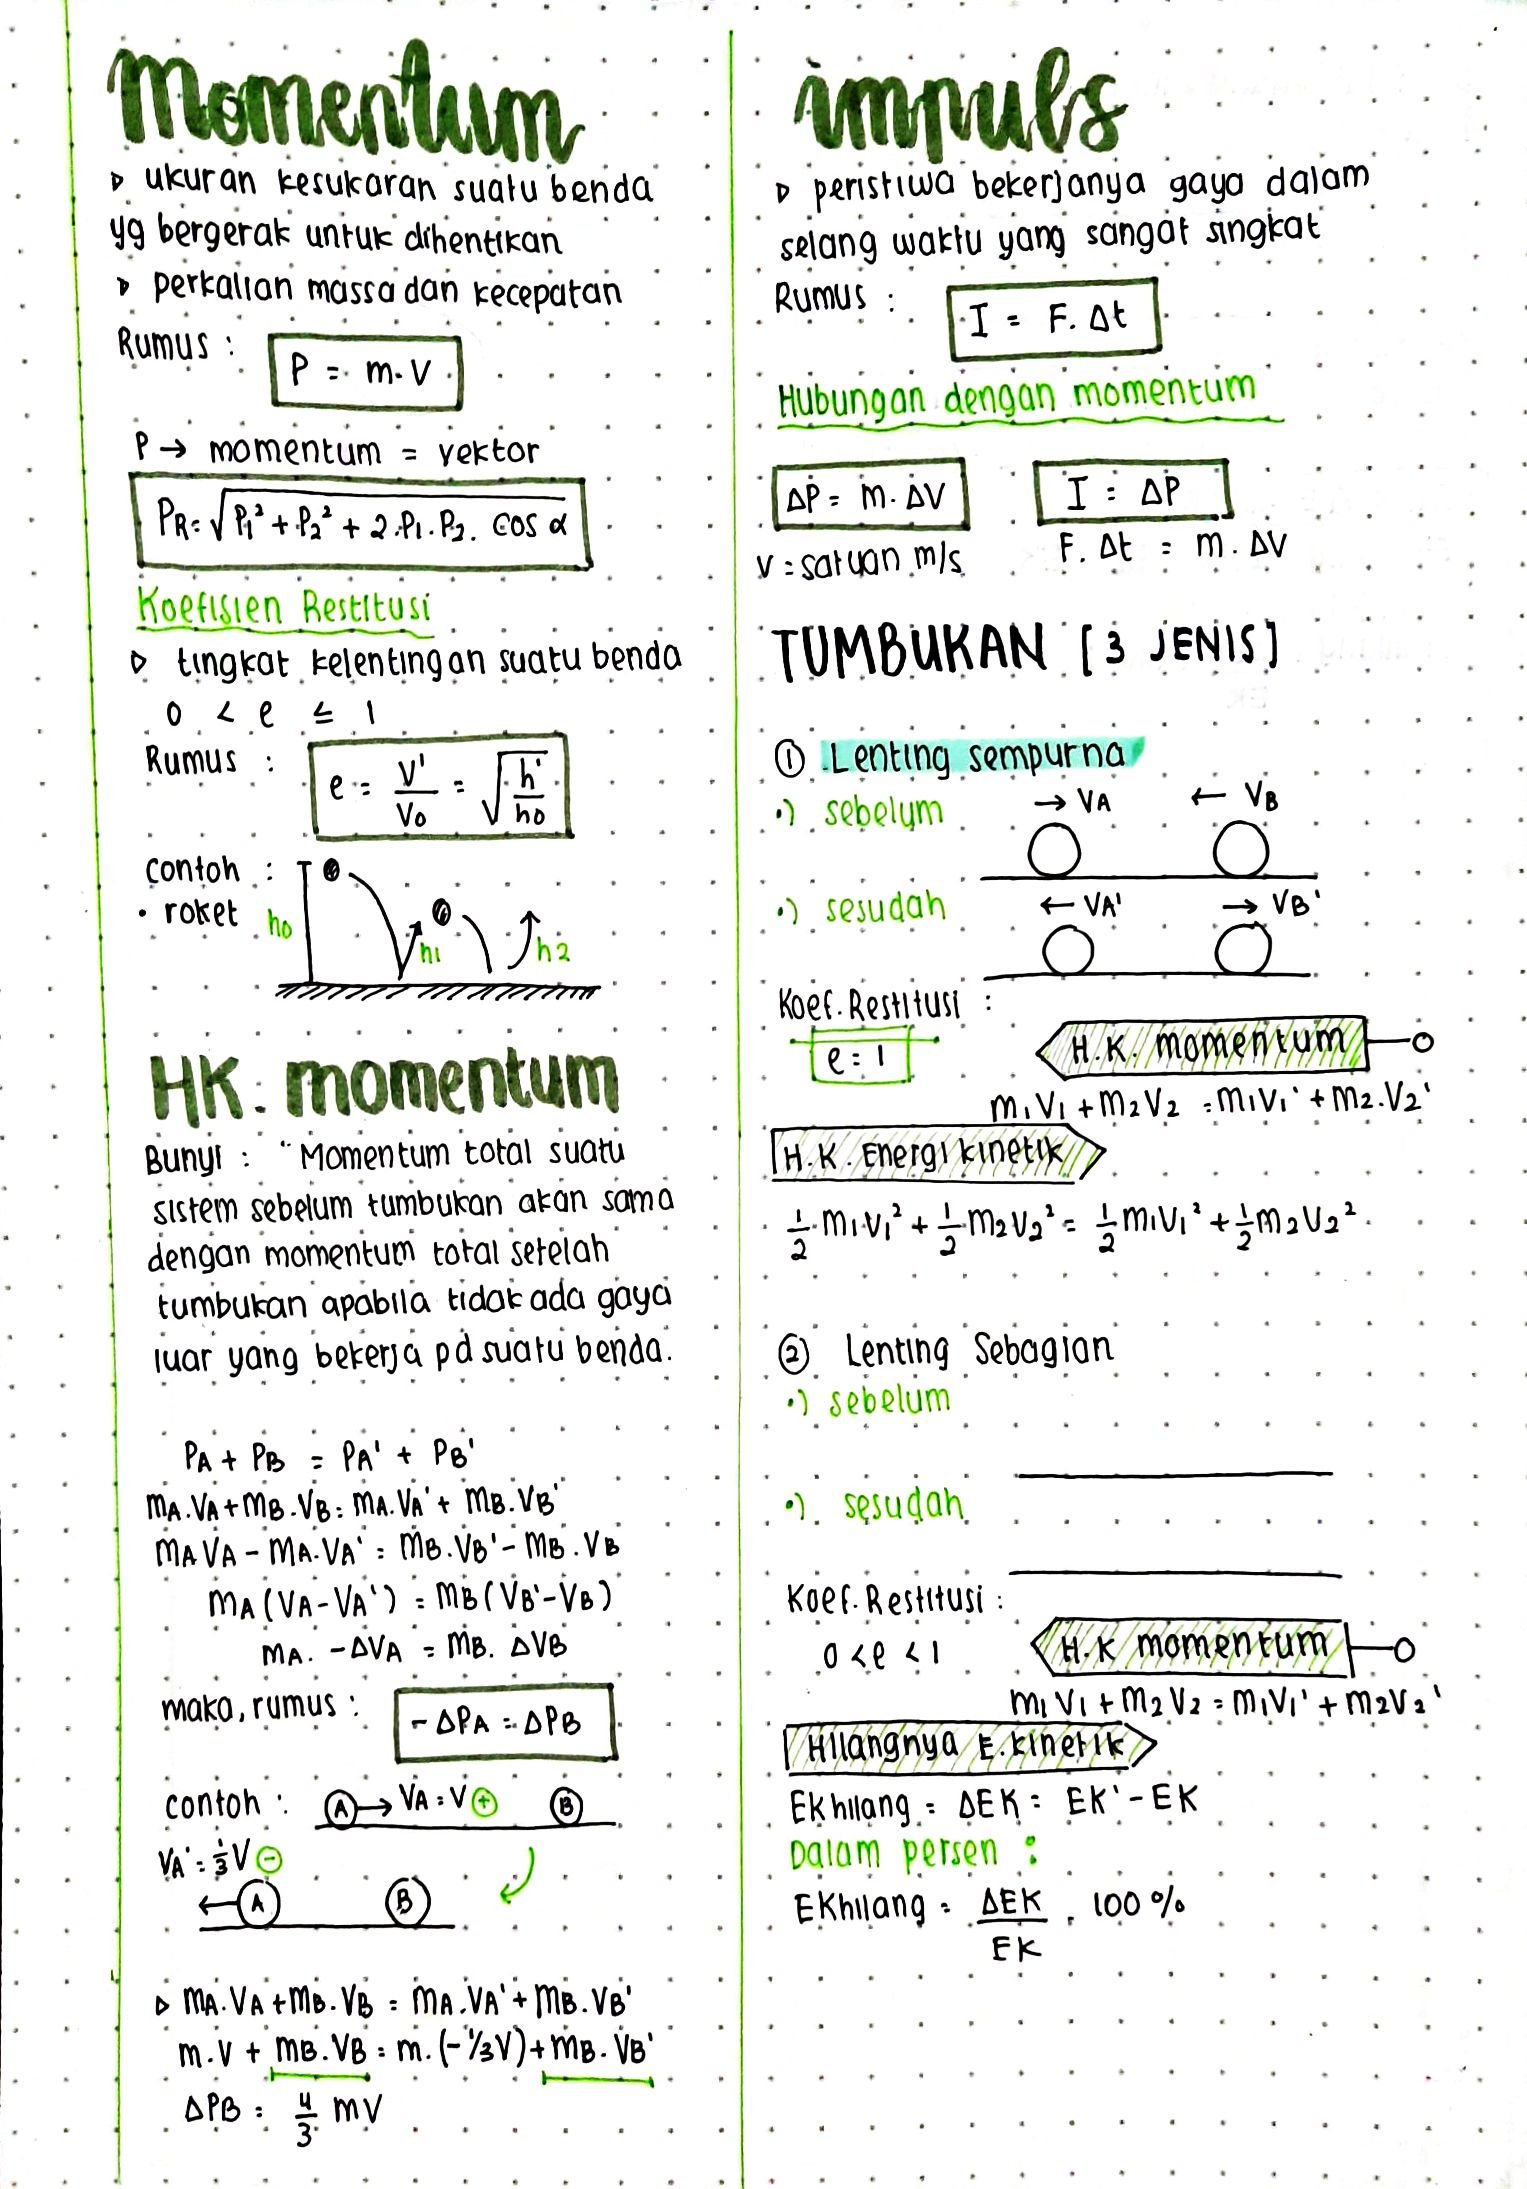 Momentum
▷ ukuran kesukaran suatu benda
yg bergerak untuk dihentikan
▷ perkalian massa dan kecepatan
Rumus :
P = m.V
P → momentum = vektor
PR = √P₁² + P₂² + 2.P₁.P₂. cos α
Koefisien Restitusi
▷ tingkat kelentingan suatu benda
0 < e ≤ 1
Rumus :
e = V'/Vo = √h'/ho
contoh :
• roket
ho
h1
h2
HK. momentum
Bunyi : "Momentum total suatu
sistem sebelum tumbukan akan sama
dengan momentum total setelah
tumbukan apabila tidak ada gaya
luar yang bekerja pd suatu benda.
PA + PB = PA' + PB'
mA.VA + mB.VB = mA.VA' + mB.VB'
mA VA - mA.VA' = mB.VB' - mB.VB
mA (VA - VA') = mB (VB' - VB)
mA. -ΔVA = mB. ΔVB
maka, rumus :
-ΔPA = ΔPB
contoh :
A → VA = V ⊕ B
VA' = 1/3 V ⊖
← A B
▷ mA.VA + mB.VB = mA.VA' + mB.VB'
m.V + mB.VB = m.(-1/3V) + mB.VB'
ΔPB = 4/3 mV
impuls
▷ peristiwa bekerjanya gaya dalam
selang waktu yang sangat singkat
Rumus :
I = F. Δt
Hubungan dengan momentum
ΔP = m. ΔV
I = ΔP
V = satuan m/s
F. Δt = m. ΔV
TUMBUKAN [3 JENIS]
① Lenting sempurna
•) sebelum
→ VA ← VB
•) sesudah
← VA' → VB'
Koef. Restitusi :
e = 1
H.K. momentum
m₁V₁ + m₂V₂ = m₁V₁' + m₂.V₂'
H.K. Energi kinetik
1/2 m₁.V₁² + 1/2 m₂V₂² = 1/2 m₁V₁² + 1/2 m₂V₂²
② Lenting Sebagian
•) sebelum
•) sesudah
Koef. Restitusi :
0 < e < 1
H.K momentum
m₁V₁ + m₂V₂ = m₁V₁' + m₂V₂'
Hilangnya E.kinetik
EK hilang = ΔEK = EK' - EK
Dalam persen :
EK hilang = ΔEK/EK . 100 %